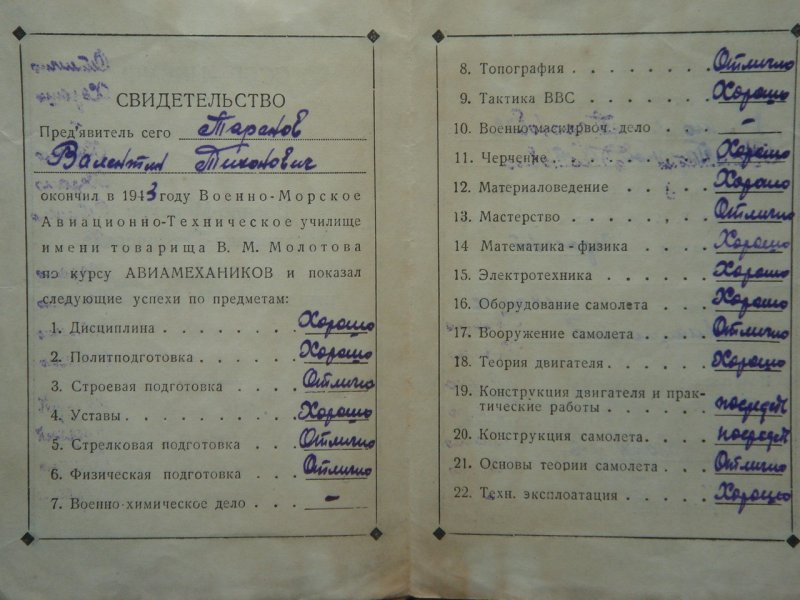 СВИДЕТЕЛЬСТВО
Пред'явитель сего Таранов
Валентин Тихонович
окончил в 1943 году Военно-Морское
Авиационно-Техническое училище
имени товарища В. М. Молотова
по курсу АВИАМЕХАНИКОВ и показал
следующие успехи по предметам:
1. Дисциплина . . . . . . Хорошо
2. Политподготовка . . . . . Хорошо
3. Строевая подготовка . . . Отлично
4. Уставы . . . . . . . . Хорошо
5. Стрелковая подготовка . . . Отлично
6. Физическая подготовка . . . Отлично
7. Военно-химическое дело . . . —
8. Топография . . . . . . . Отлично
9. Тактика ВВС . . . . . . Хорошо
10. Военно-маскировоч. дело . . . —
11. Черчение . . . . . . . Хорошо
12. Материаловедение . . . . Хорошо
13. Мастерство . . . . . . Отлично
14 Математика-физика . . . . Хорошо
15. Электротехника . . . . . Хорошо
16. Оборудование самолета . . . Хорошо
17. Вооружение самолета . . . Отлично
18. Теория двигателя . . . . . Хорошо
19. Конструкция двигателя и прак-
тические работы . . . . . посредст
20. Конструкция самолета. . . . посредст
21. Основы теории самолета . . . Отлично
22. Техн. эксплоатация . . . . . Хорошо